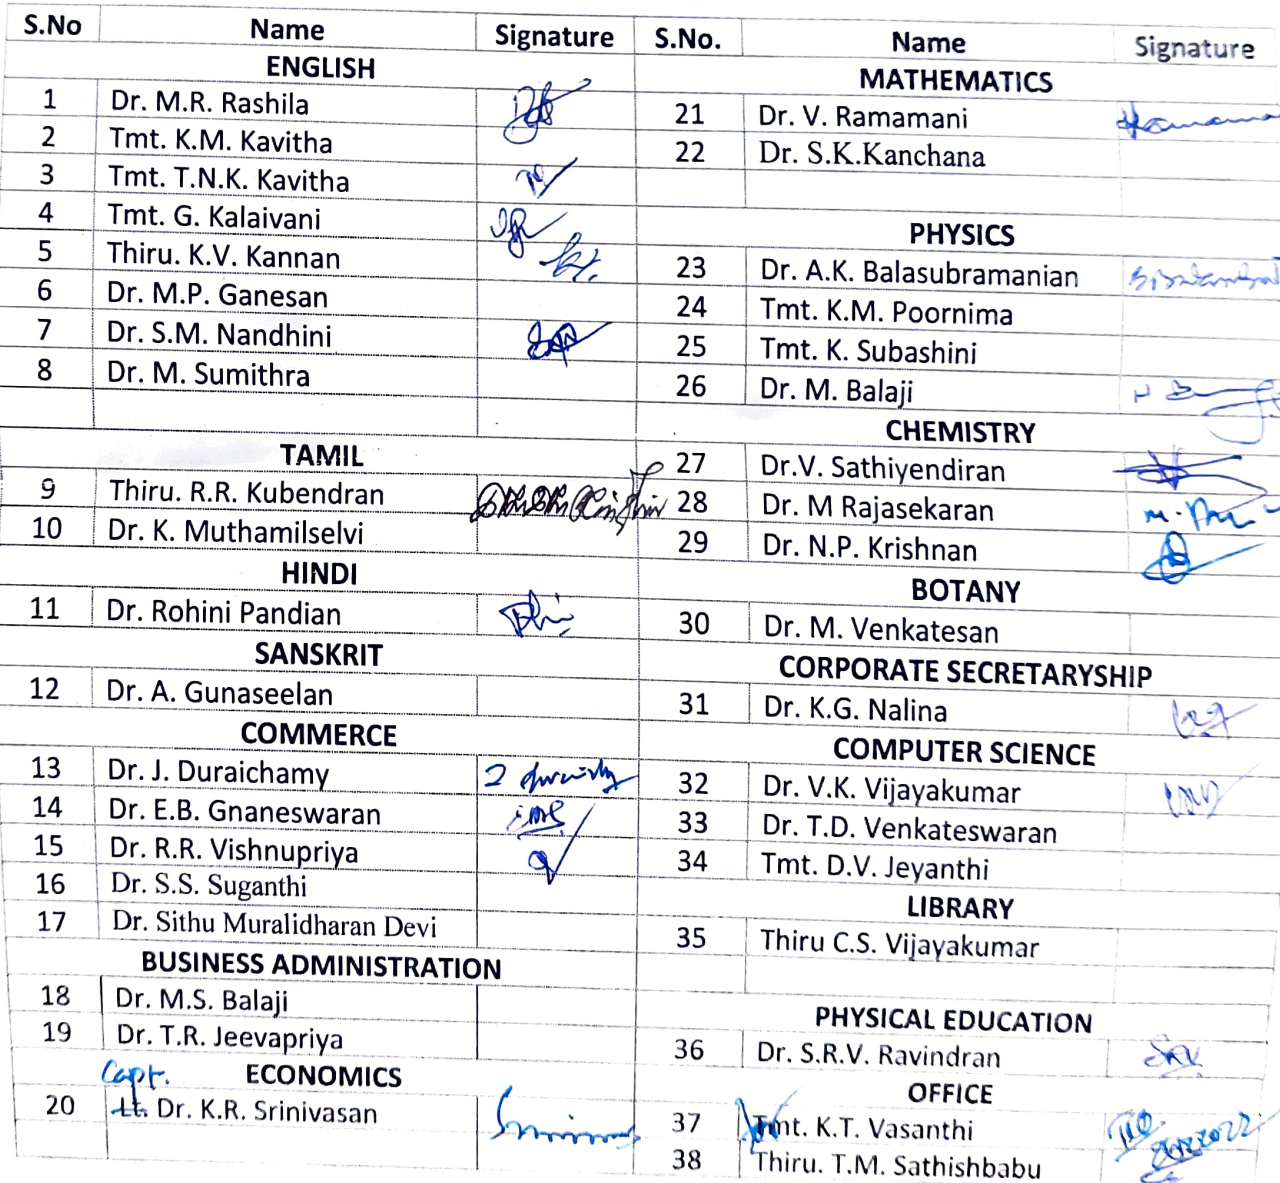 S.No Name Signature
ENGLISH
1 Dr. M.R. Rashila
2 Tmt. K.M. Kavitha
3 Tmt. T.N.K. Kavitha
4 Tmt. G. Kalaivani
5 Thiru. K.V. Kannan
6 Dr. M.P. Ganesan
7 Dr. S.M. Nandhini
8 Dr. M. Sumithra
TAMIL
9 Thiru. R.R. Kubendran
10 Dr. K. Muthamilselvi
HINDI
11 Dr. Rohini Pandian
SANSKRIT
12 Dr. A. Gunaseelan
COMMERCE
13 Dr. J. Duraichamy
14 Dr. E.B. Gnaneswaran
15 Dr. R.R. Vishnupriya
16 Dr. S.S. Suganthi
17 Dr. Sithu Muralidharan Devi
BUSINESS ADMINISTRATION
18 Dr. M.S. Balaji
19 Dr. T.R. Jeevapriya
Capt. ECONOMICS
20 Lt. Dr. K.R. Srinivasan
S.No. Name Signature
MATHEMATICS
21 Dr. V. Ramamani
22 Dr. S.K.Kanchana
PHYSICS
23 Dr. A.K. Balasubramanian
24 Tmt. K.M. Poornima
25 Tmt. K. Subashini
26 Dr. M. Balaji
CHEMISTRY
27 Dr.V. Sathiyendiran
28 Dr. M Rajasekaran
29 Dr. N.P. Krishnan
BOTANY
30 Dr. M. Venkatesan
CORPORATE SECRETARYSHIP
31 Dr. K.G. Nalina
COMPUTER SCIENCE
32 Dr. V.K. Vijayakumar
33 Dr. T.D. Venkateswaran
34 Tmt. D.V. Jeyanthi
LIBRARY
35 Thiru C.S. Vijayakumar
PHYSICAL EDUCATION
36 Dr. S.R.V. Ravindran
OFFICE
37 Tmt. K.T. Vasanthi
38 Thiru. T.M. Sathishbabu